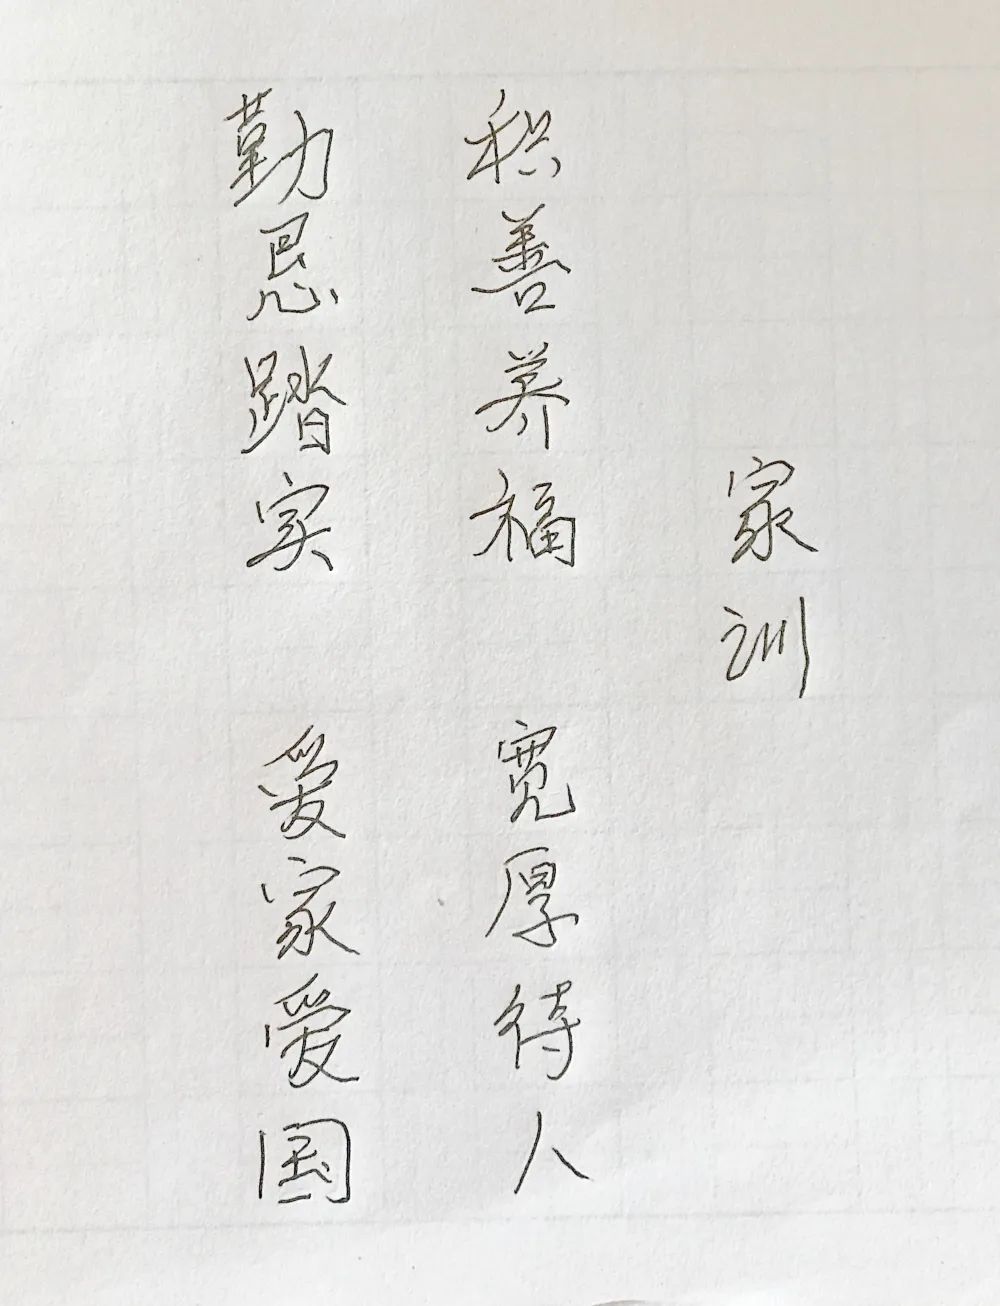 家训
积善养福 宽厚待人
勤恳踏实 爱家爱国